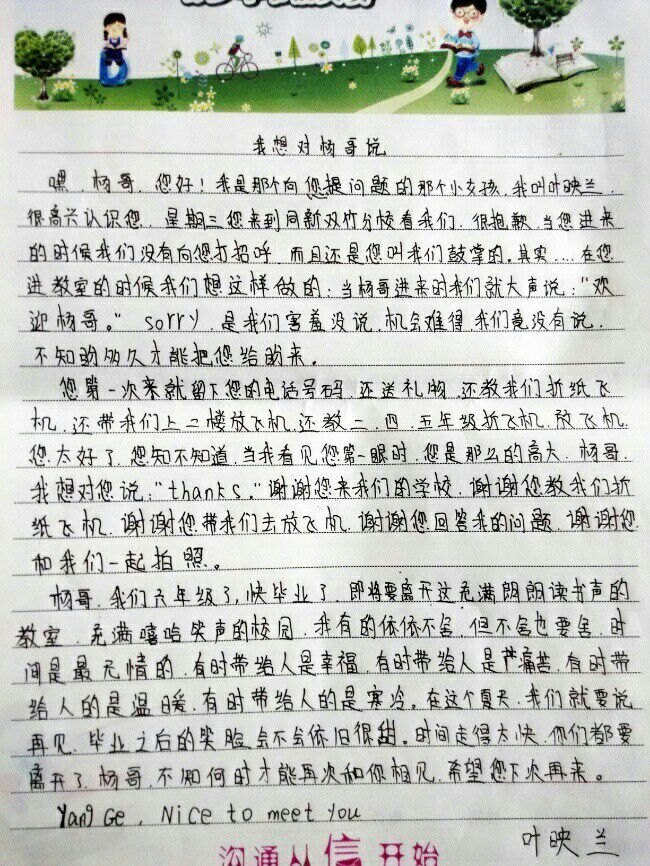 我想对杨哥说
嘿，杨哥，您好！我是那个向您提问题的那个小女孩，我叫叶映兰，
很高兴认识您，星期三您来到同新双竹分校看我们，很抱歉，当您进来
的时候我们没有向您打招呼，而且还是您叫我们鼓掌的。其实....在您
进教室的时候我们想这样做的：当杨哥进来时我们就大声说："欢
迎杨哥。" sorry，是我们害羞没说，机会难得，我们竟没有说，
不知哟多久才能把您给盼来。
您第一次来就留下您的电话号码，还送礼物，还教我们折纸飞
机，还带我们上二楼放飞机，还教二、四、五年级折飞机，放飞机，
您太好了，您知不知道，当我看见您第一眼时，您是那么的高大，杨哥，
我想对您说："thanks."谢谢您来我们的学校，谢谢您教我们折
纸飞机，谢谢您带我们去放飞机，谢谢您回答我的问题，谢谢您
和我们一起拍照。
杨哥，我们六年级了，快毕业了，即将要离开这充满朗朗读书声的
教室，充满嘻哈笑声的校园，我有的依依不舍，但不舍也要舍，时
间是最无情的，有时带给人是幸福，有时带给人是痛苦，有时带
给人的是温暖，有时带给人的是寒冷。在这个夏天，我们就要说
再见，毕业之后的笑脸会不会依旧很甜。时间走得太快，你们都要
离开了，杨哥，不知何时才能再次和你相见，希望您下次再来。
Yang Ge，Nice to meet you
叶映兰
沟通从信开始